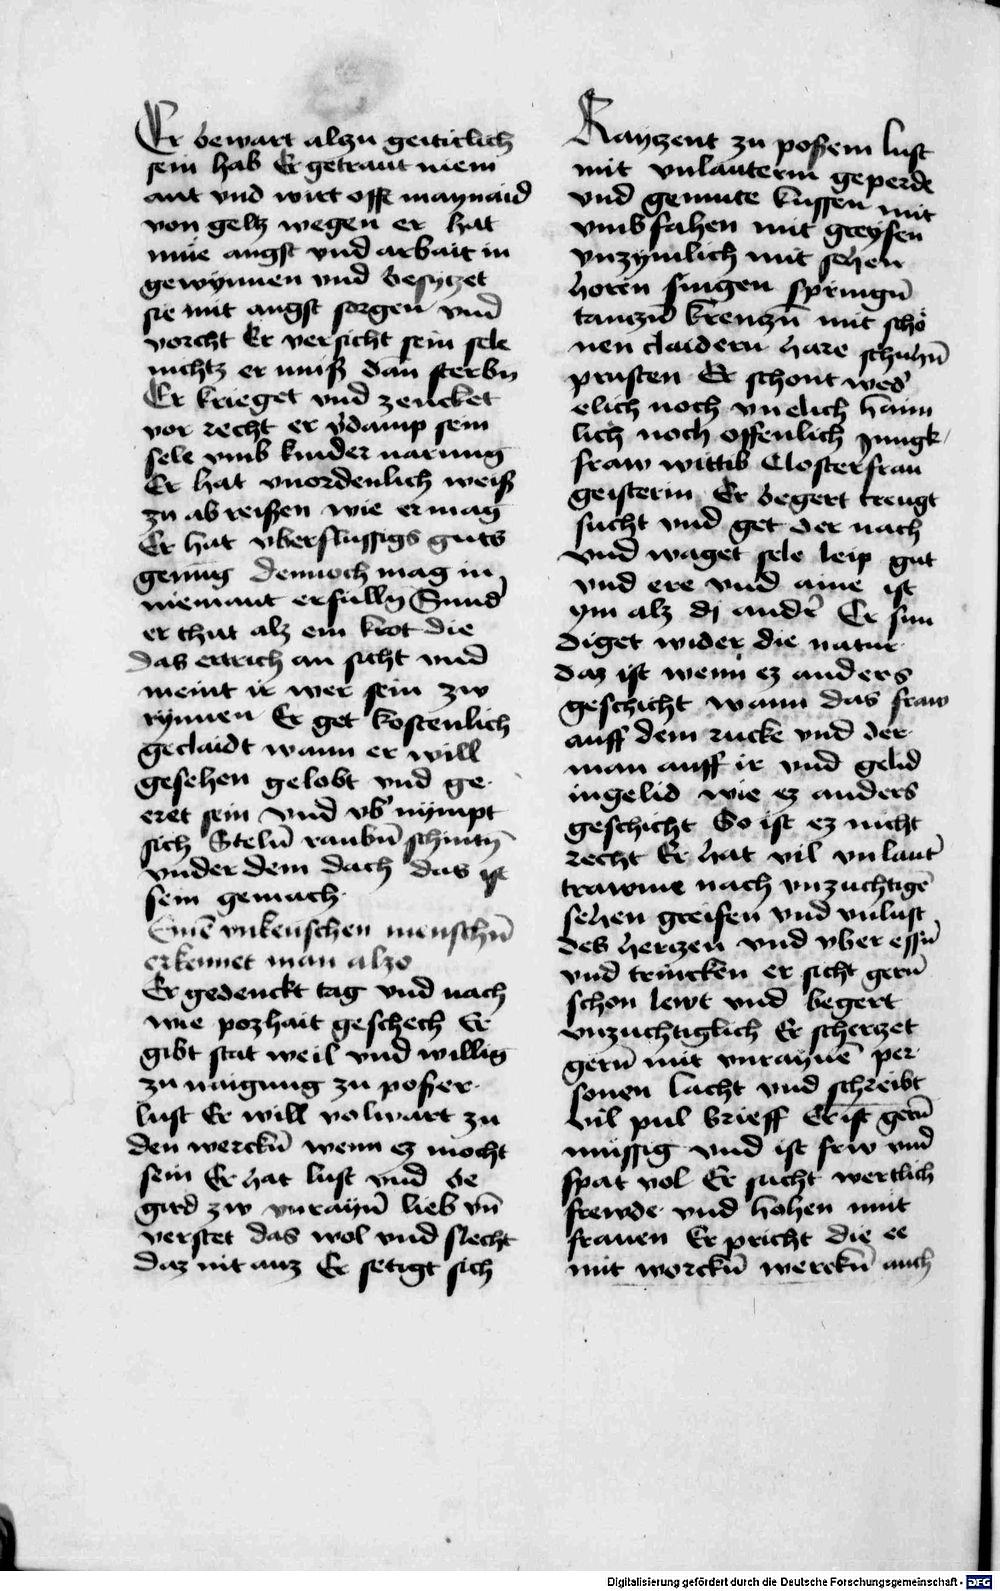 Er bewart alzu geiticlich
sein hab Er getraut niem
ant vnd wirt offt maynaid
von geltz wegen er hat
müe angst vnd arbait in
gewynnen vnd besytzet
sie mit angst sorgen vnd
vorcht Er versicht sein sele
nichtz er muiß dan sterbn
Er krieget vnd zencket
vor recht er v̄damp sein
sele vmb kinder narung
Er hat vnordenlich weiß
zu ab reißen wie er mag
Er hat vberflussigs guts
genug dennoch mag in
niemant erfullen Sund̕
er thut alz ein krot die
das ertrich an sicht vnd
meint ir wer sein zw
rynnen Er get kostenlich
geclaidt wann er will
gesehen gelobt vnd ge
eret sein vnd vb̕ nympt
sich Steln̄ raubn̄ schintn̄
vnder dem dach das ist
sein gemach
Einē vnkeuschen menschn̄
erkennet man alzo
Er gedenckt tag vnd nach
wie pozhait geschech Er
gibt stat weil vnd willig
zu naigung zu poßer
lust Er will volwart zu
den werckn̄ wenn ez mocht
sein Er hat lust vnd be
gird zw vnrayn̄ lieb vn̄
verstet das wol vnd slecht
daz nit auz Er setigt sich
Rayzent zu poßem lust
mit vnlauterm geperde
vnd gemute kussen mit
vmbfahen mit greyfen
vnzymlich mit sehen
horen singen springn̄
tanczn̄ krenczn̄ mit scho
nen claidern hare schuhn̄
prusten Er schont wed̕
elich noch vnelich haim
lich noch offenlich Jungk
fraw wittib Closterfrau
geisterin Er begert trengt
sucht vnd get der nach
vnd waget sele leip gut
vnd ere vnd aine ist
ym alz dj ander̄ Er sun
diget wider die natur
daz ist wenn ez anders
geschicht wann das fraw
auff dem rucke vnd der
man auff ir vnd gelid
in gelid wie ez anders
geschicht So ist ez nicht
recht Er hat vil vnlaut̕
trawme nach vnzuchtigē
sehen greifen vnd vnlust
des herczen vnd vber essn̄
vnd trincken er sicht gern̄
schon lewt vnd begert
vnzuchtiglich Er scherczet
gern̄ mit vnraynē per
sonen lacht vnd schreibt
vil pul brieff Er ist gern̄
mussig vnd ist frw vnd
spat vol Er sucht wertlich
frewde vnd hohen mut
frauen Er pricht die ee
mit worckn̄ werckn̄ auch
Digitalisierung gefördert durch die Deutsche Forschungsgemeinschaft - DFG